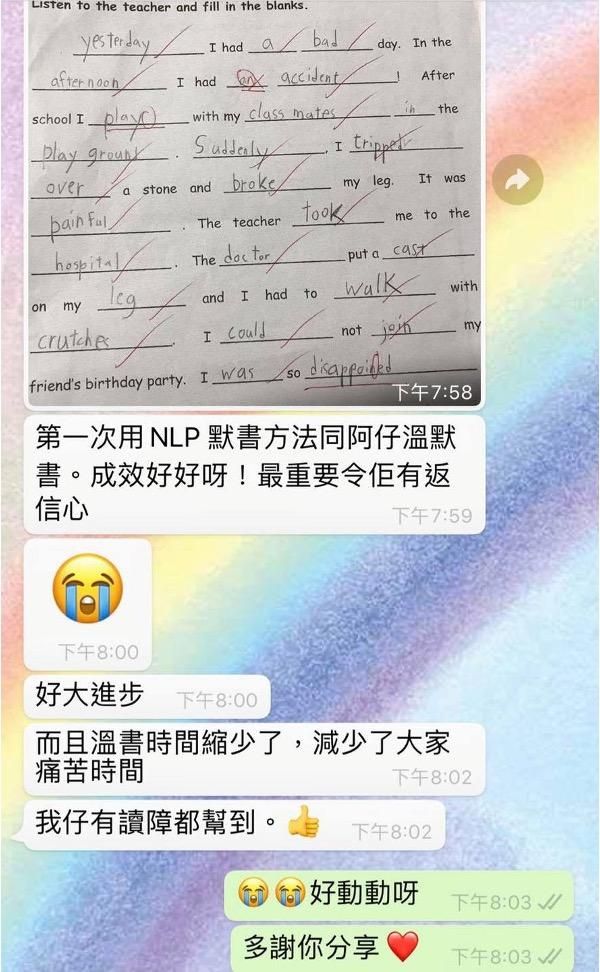 Listen to the teacher and fill in the blanks.
yesterday I had a bad day. In the
afternoon I had an accident! After
school I play with my class mates in the
play ground. Suddenly, I tripped
over a stone and broke my leg. It was
painful. The teacher took me to the
hospital. The doctor put a cast
on my leg and I had to walk with
crutches. I could not join my
friend's birthday party. I was so disappointed
下午7:58
第一次用 NLP 默書方法同阿仔溫默
書。成效好好呀！最重要令佢有返
信心
下午7:59
😭
下午8:00
好大進步 下午8:00
而且溫書時間縮少了，減少了大家
痛苦時間
下午8:02
我仔有讀障都幫到。👍 下午8:02
😭😭好動動呀 下午8:03
多謝你分享❤️ 下午8:03